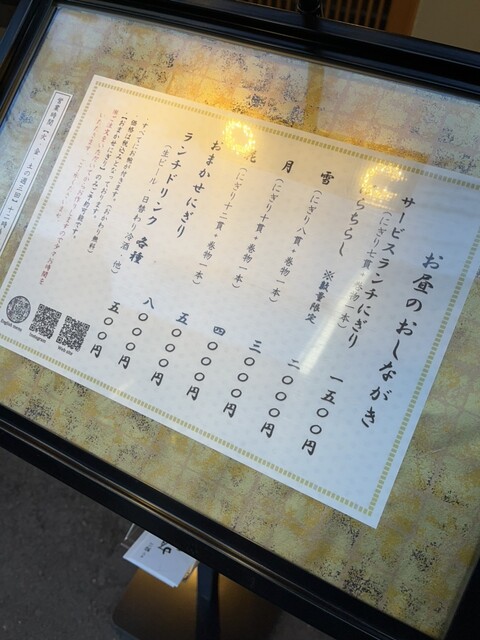 お昼のおしながき
サービスランチにぎり 一五〇〇円
(にぎり七貫・巻物一本)
らちらし ※数量限定 二〇〇〇円
雪 三〇〇〇円
(にぎり八貫・巻物一本)
月 四〇〇〇円
(にぎり十貫・巻物一本)
五〇〇〇円
(にぎり十二貫・巻物一本)
おまかせにぎり 八〇〇〇円
ランチドリンク 各種 五〇〇円
(生ビール・日替わり冷酒・他)
すべてにお椀が付きます。(おかわり無料)
価格は税込みとなっております。
営業時間
English menu
Instagram
Web site